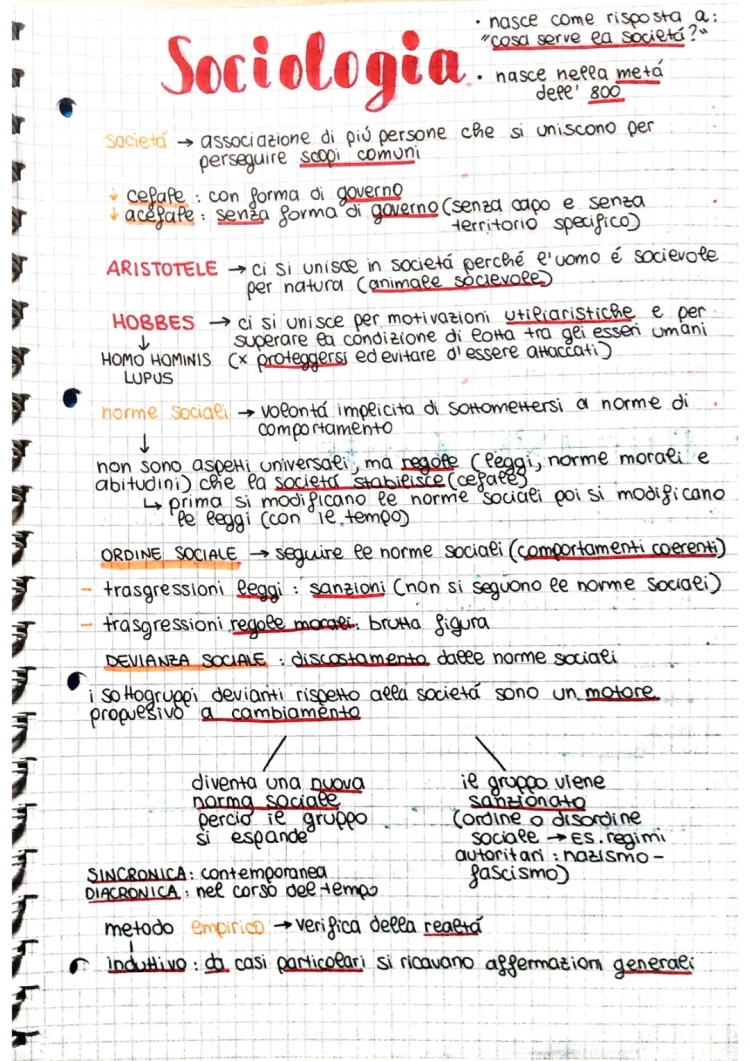 Sociologia
• nasce come risposta a:
"cosa serve la societá?"
• nasce nella metá
dell' 800
societá → associazione di piú persone che si uniscono per
perseguire scopi comuni
↓ cefale : con forma di governo
↓ acefale : senza forma di governo (senza capo e senza
territorio specifico)
ARISTOTELE → ci si unisce in societá perché l'uomo é socievole
per natura (animale socievole)
HOBBES → ci si unisce per motivazioni utiliaristiche e per
superare la condizione di lotta tra gli esseri umani
(x proteggersi ed evitare d'essere attaccati)
↓
HOMO HOMINIS
LUPUS
norme sociali → volontá implicita di sottomettersi a norme di
comportamento
↓
non sono aspetti universali, ma regole (leggi, norme morali e
abitudini) che la societá stabilisce (cefale)
↳ prima si modificano le norme sociali poi si modificano
le leggi (con il tempo)
ORDINE SOCIALE → seguire le norme sociali (comportamenti coerenti)
- trasgressioni leggi : sanzioni (non si seguono le norme sociali)
- trasgressioni regole morali : brutta figura
DEVIANZA SOCIALE : discostamento dalle norme sociali
i sottogruppi devianti rispetto alla societá sono un motore
propulsivo a cambiamento
diventa una nuova
norma sociale
percio il gruppo
si espande
il gruppo viene
sanzionato
(ordine o disordine
sociale → ES. regimi
autoritari : nazismo -
fascismo)
SINCRONICA : contemporanea
DIACRONICA : nel corso del tempo
metodo empirico → verifica della realtá
induttivo : da casi particolari si ricavano affermazioni generali